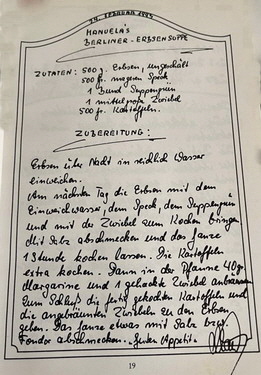 14. FEBRUAR 2005
MANUELA'S
BERLINER-ERBSENSUPPE
ZUTATEN: 500 g. Erbsen, ungeschält
500 gr. mageren Speck
1 Bund Suppengrün
1 mittelgroße Zwiebel
500 gr. Kartoffeln.
ZUBEREITUNG:
Erbsen über Nacht in reichlich Wasser
einweichen.
Am nächsten Tag die Erbsen mit dem
Einweichwasser, dem Speck, dem Suppengrün
und mit der Zwiebel zum Kochen bringen
Mit Salz abschmecken und das ganze
1 Stunde kochen lassen. Die Kartoffeln
extra kochen. Dann in der Pfanne 40 gr.
Margarine und 1 gehackte Zwiebel anbraten
Zum Schluß die fertig gekochten Kartoffeln und
die angebräunten Zwiebeln zu den Erbsen
geben. Das ganze etwas mit Salz bzw.
Fondor abschmecken. Guten Appetit.
19